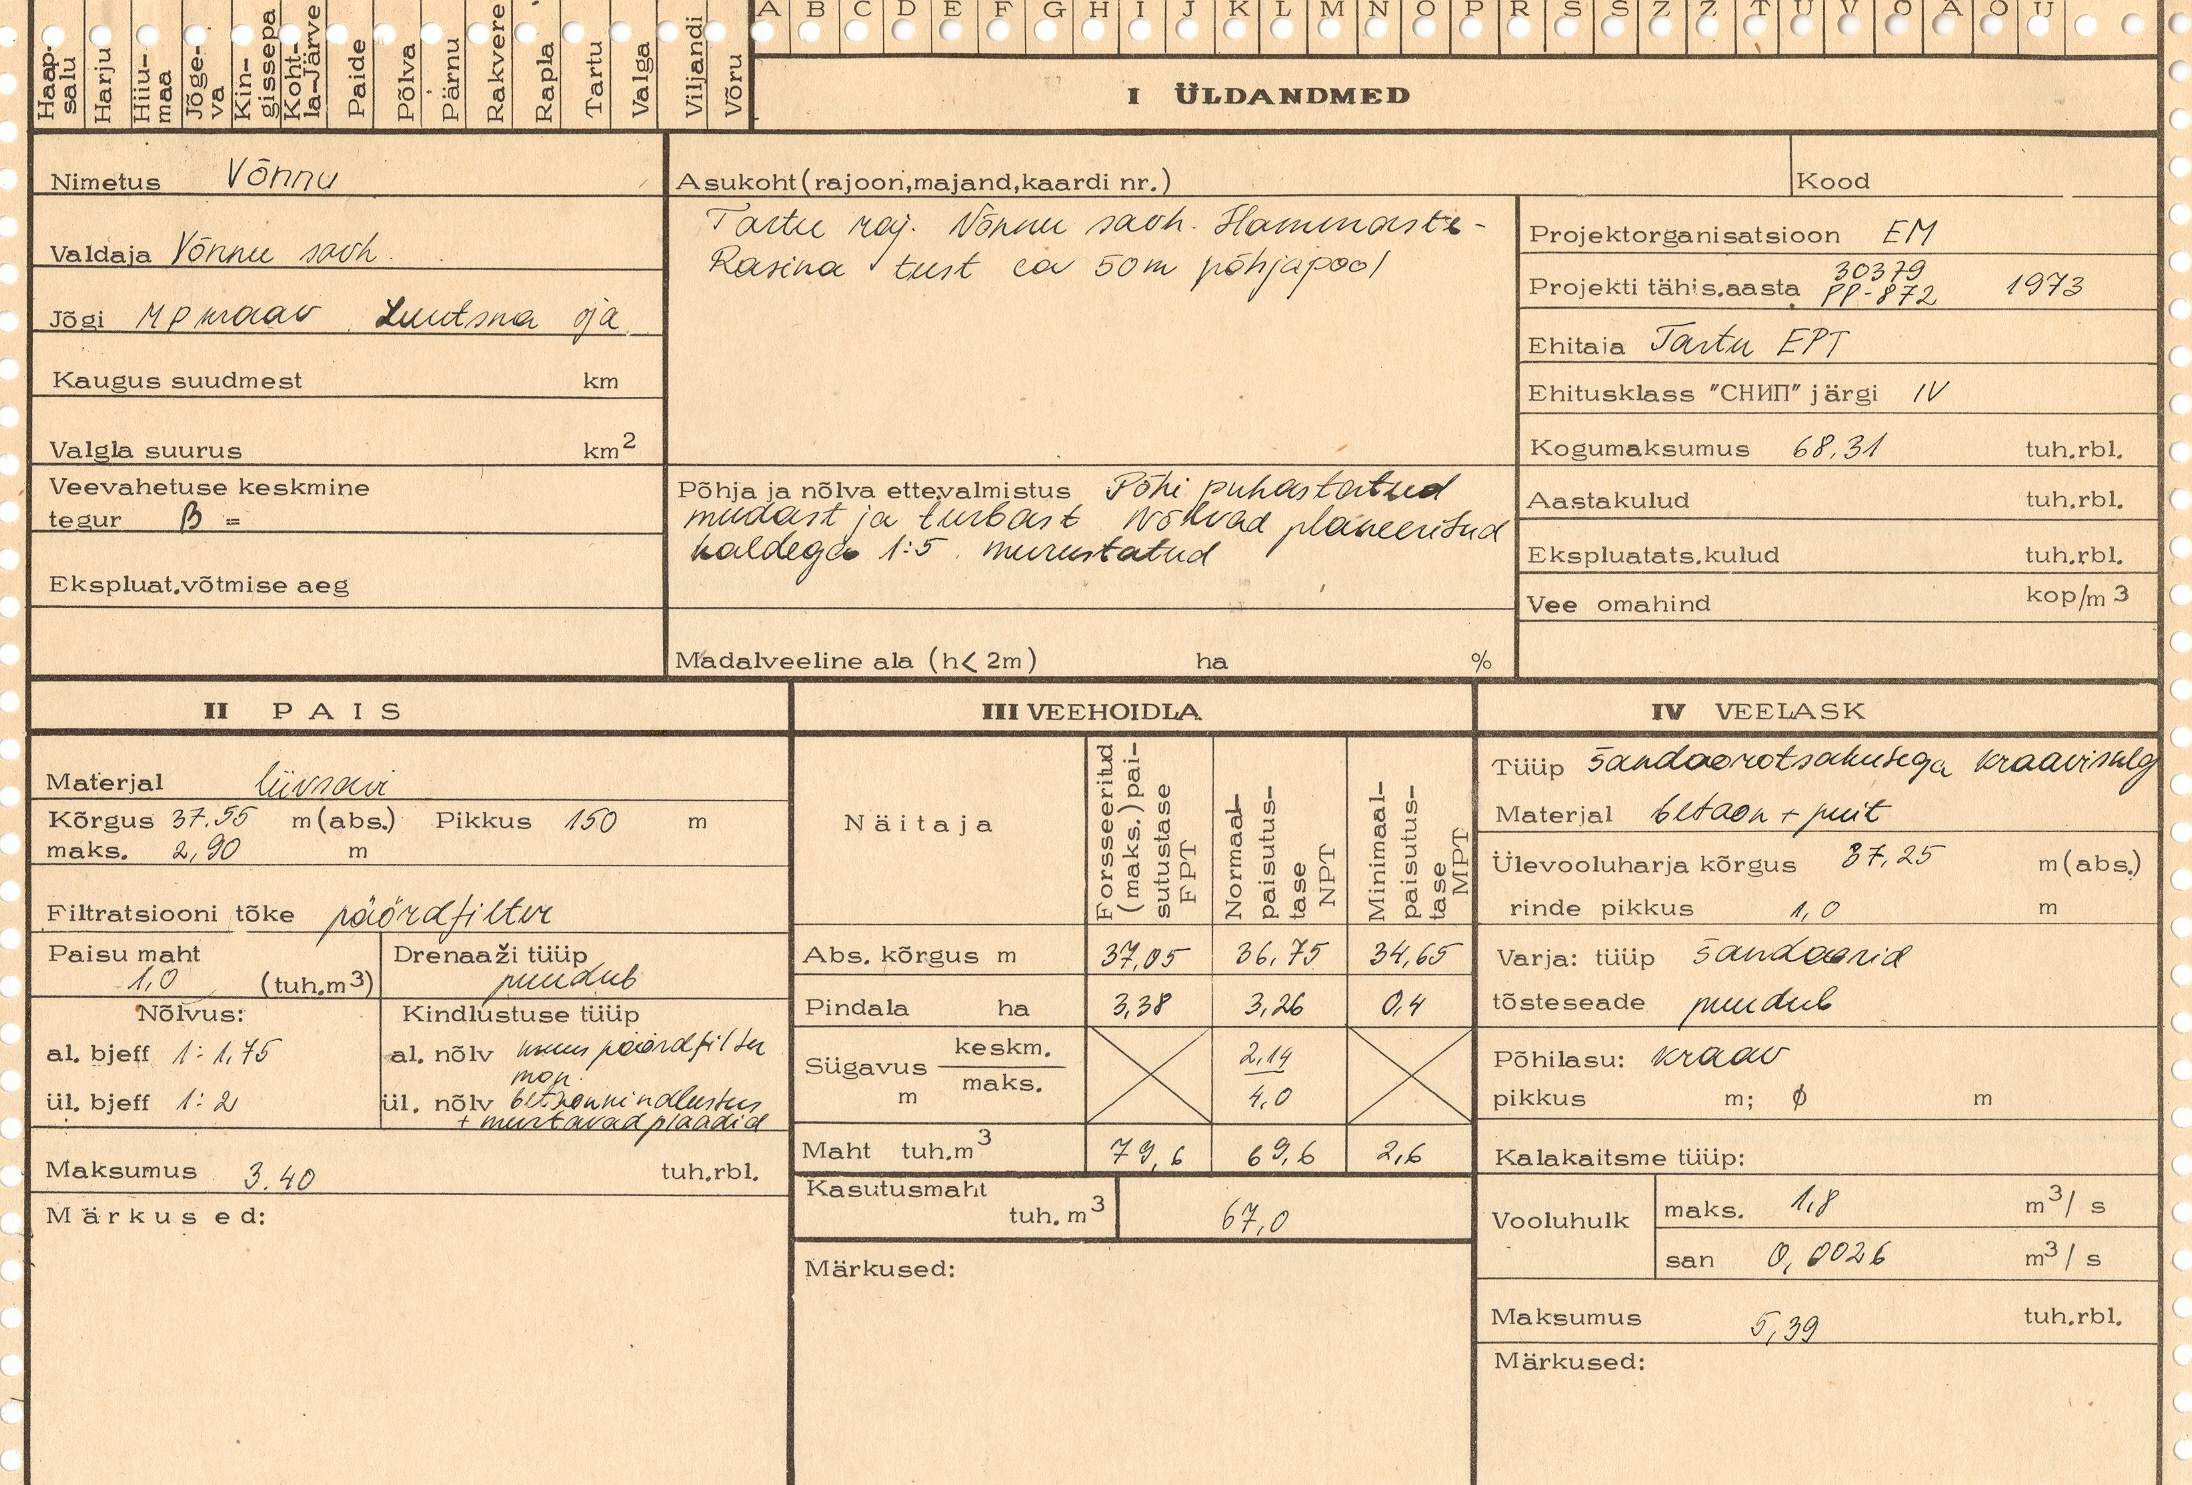 A B C D E F G H I J K L M N O P R S Š Z Ž T U V Õ Ä Ö Ü
Haap-
salu
Harju
Hiiu-
maa
Jõge-
va
Kin-
gissepa
Koht-
la-Järve
Paide
Põlva
Pärnu
Rakvere
Rapla
Tartu
Valga
Viljandi
Võru
I ÜLDANDMED
Nimetus Võnnu
Valdaja Võnnu sovh.
Jõgi MP kraav Luutsna oja
Kaugus suudmest km
Valgla suurus km2
Veevahetuse keskmine
tegur β =
Ekspluat.võtmise aeg
Asukoht(rajoon,majand,kaardi nr.)
Tartu raj. Võnnu sovh. Hammaste-
Rasina tust ca 50m põhjapool
Põhja ja nõlva ettevalmistus Põhi puhastatud
mudast ja turbast Nõlvad planeeritud
kaldega 1:5. murustatud
Madalveeline ala (h< 2m) ha %
Kood
Projektorganisatsioon EM
Projekti tähis.aasta 30379
PP-872 1973
Ehitaja Tartu EPT
Ehitusklass "СНИП" järgi IV
Kogumaksumus 68,31 tuh.rbl.
Aastakulud tuh.rbl.
Ekspluatats.kulud tuh.rbl.
Vee omahind kop/m3
II PAIS
Materjal liivsavi
Kõrgus 37.55 m(abs.) Pikkus 150 m
maks. 2,90 m
Filtratsiooni tõke pöördfilter
Paisu maht
1,0 (tuh.m3)
Drenaaži tüüp
puudub
Nõlvus:
al. bjeff 1:1,75
ül. bjeff 1:2
Kindlustuse tüüp
al. nõlv pöördfilter
mon.
ül. nõlv betoonkindlustus
+ murtavad plaadid
Maksumus 3.40 tuh.rbl.
Märkused:
III VEEHOIDLA
Näitaja
Forsseeritud
(maks.)pai-
sutustase
FPT
Normaal-
paisutus-
tase
NPT
Minimaal-
paisutus-
tase
MPT
Abs. kõrgus m 37,05 36,75 34,65
Pindala ha 3,38 3,26 0,4
Sügavus m keskm. 2,14
maks. 4,0
Maht tuh.m3 79,6 69,6 2,6
Kasutusmaht
tuh.m3 67,0
Märkused:
IV VEELASK
Tüüp šandoorotsakusega kraavisulg
Materjal betoon + puit
Ülevooluharja kõrgus 37,25 m(abs.)
rinde pikkus 1,0 m
Varja: tüüp šandoorid
tõsteseade puudub
Põhilasu: kraav
pikkus m; ϕ m
Kalakaitsme tüüp:
Vooluhulk maks. 1,8 m3/s
san 0,0026 m3/s
Maksumus 5,39 tuh.rbl.
Märkused: